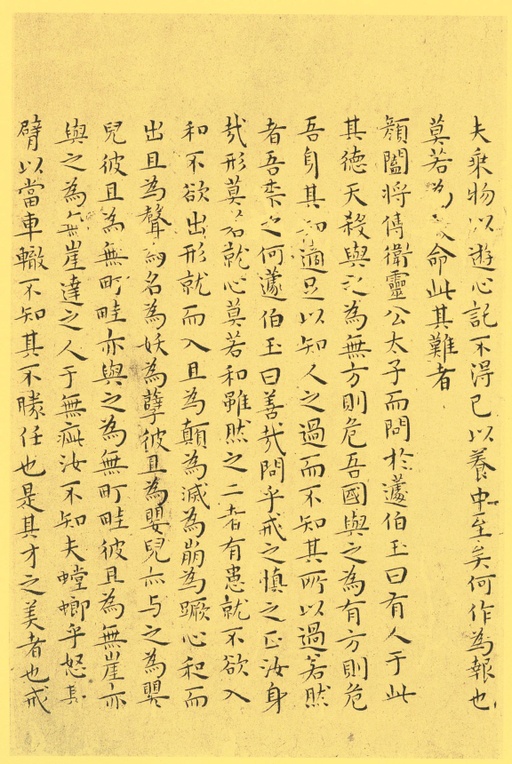 夫乗物以遊心託不得已以養中至矣何作為報也
莫若為致命此其難者
顔闔将傅衛靈公太子而問於蘧伯玉曰有人于此
其徳天殺與之為無方則危吾國與之為有方則危
吾身其知適足以知人之過而不知其所以過若然
者吾柰之何蘧伯玉曰善㢤問乎戒之慎之正汝身
㢤形莫若就心莫若和雖然之二者有患就不欲入
和不欲出形就而入且為顛為滅為崩為蹶心和而
出且為聲為名為妖為孽彼且為嬰兒亦与之為嬰
兒彼且為無町畦亦與之為無町畦彼且為無崖亦
與之為無崖達之人于無疵汝不知夫螳蜋乎怒其
臂以當車轍不知其不勝任也是其才之美者也戒